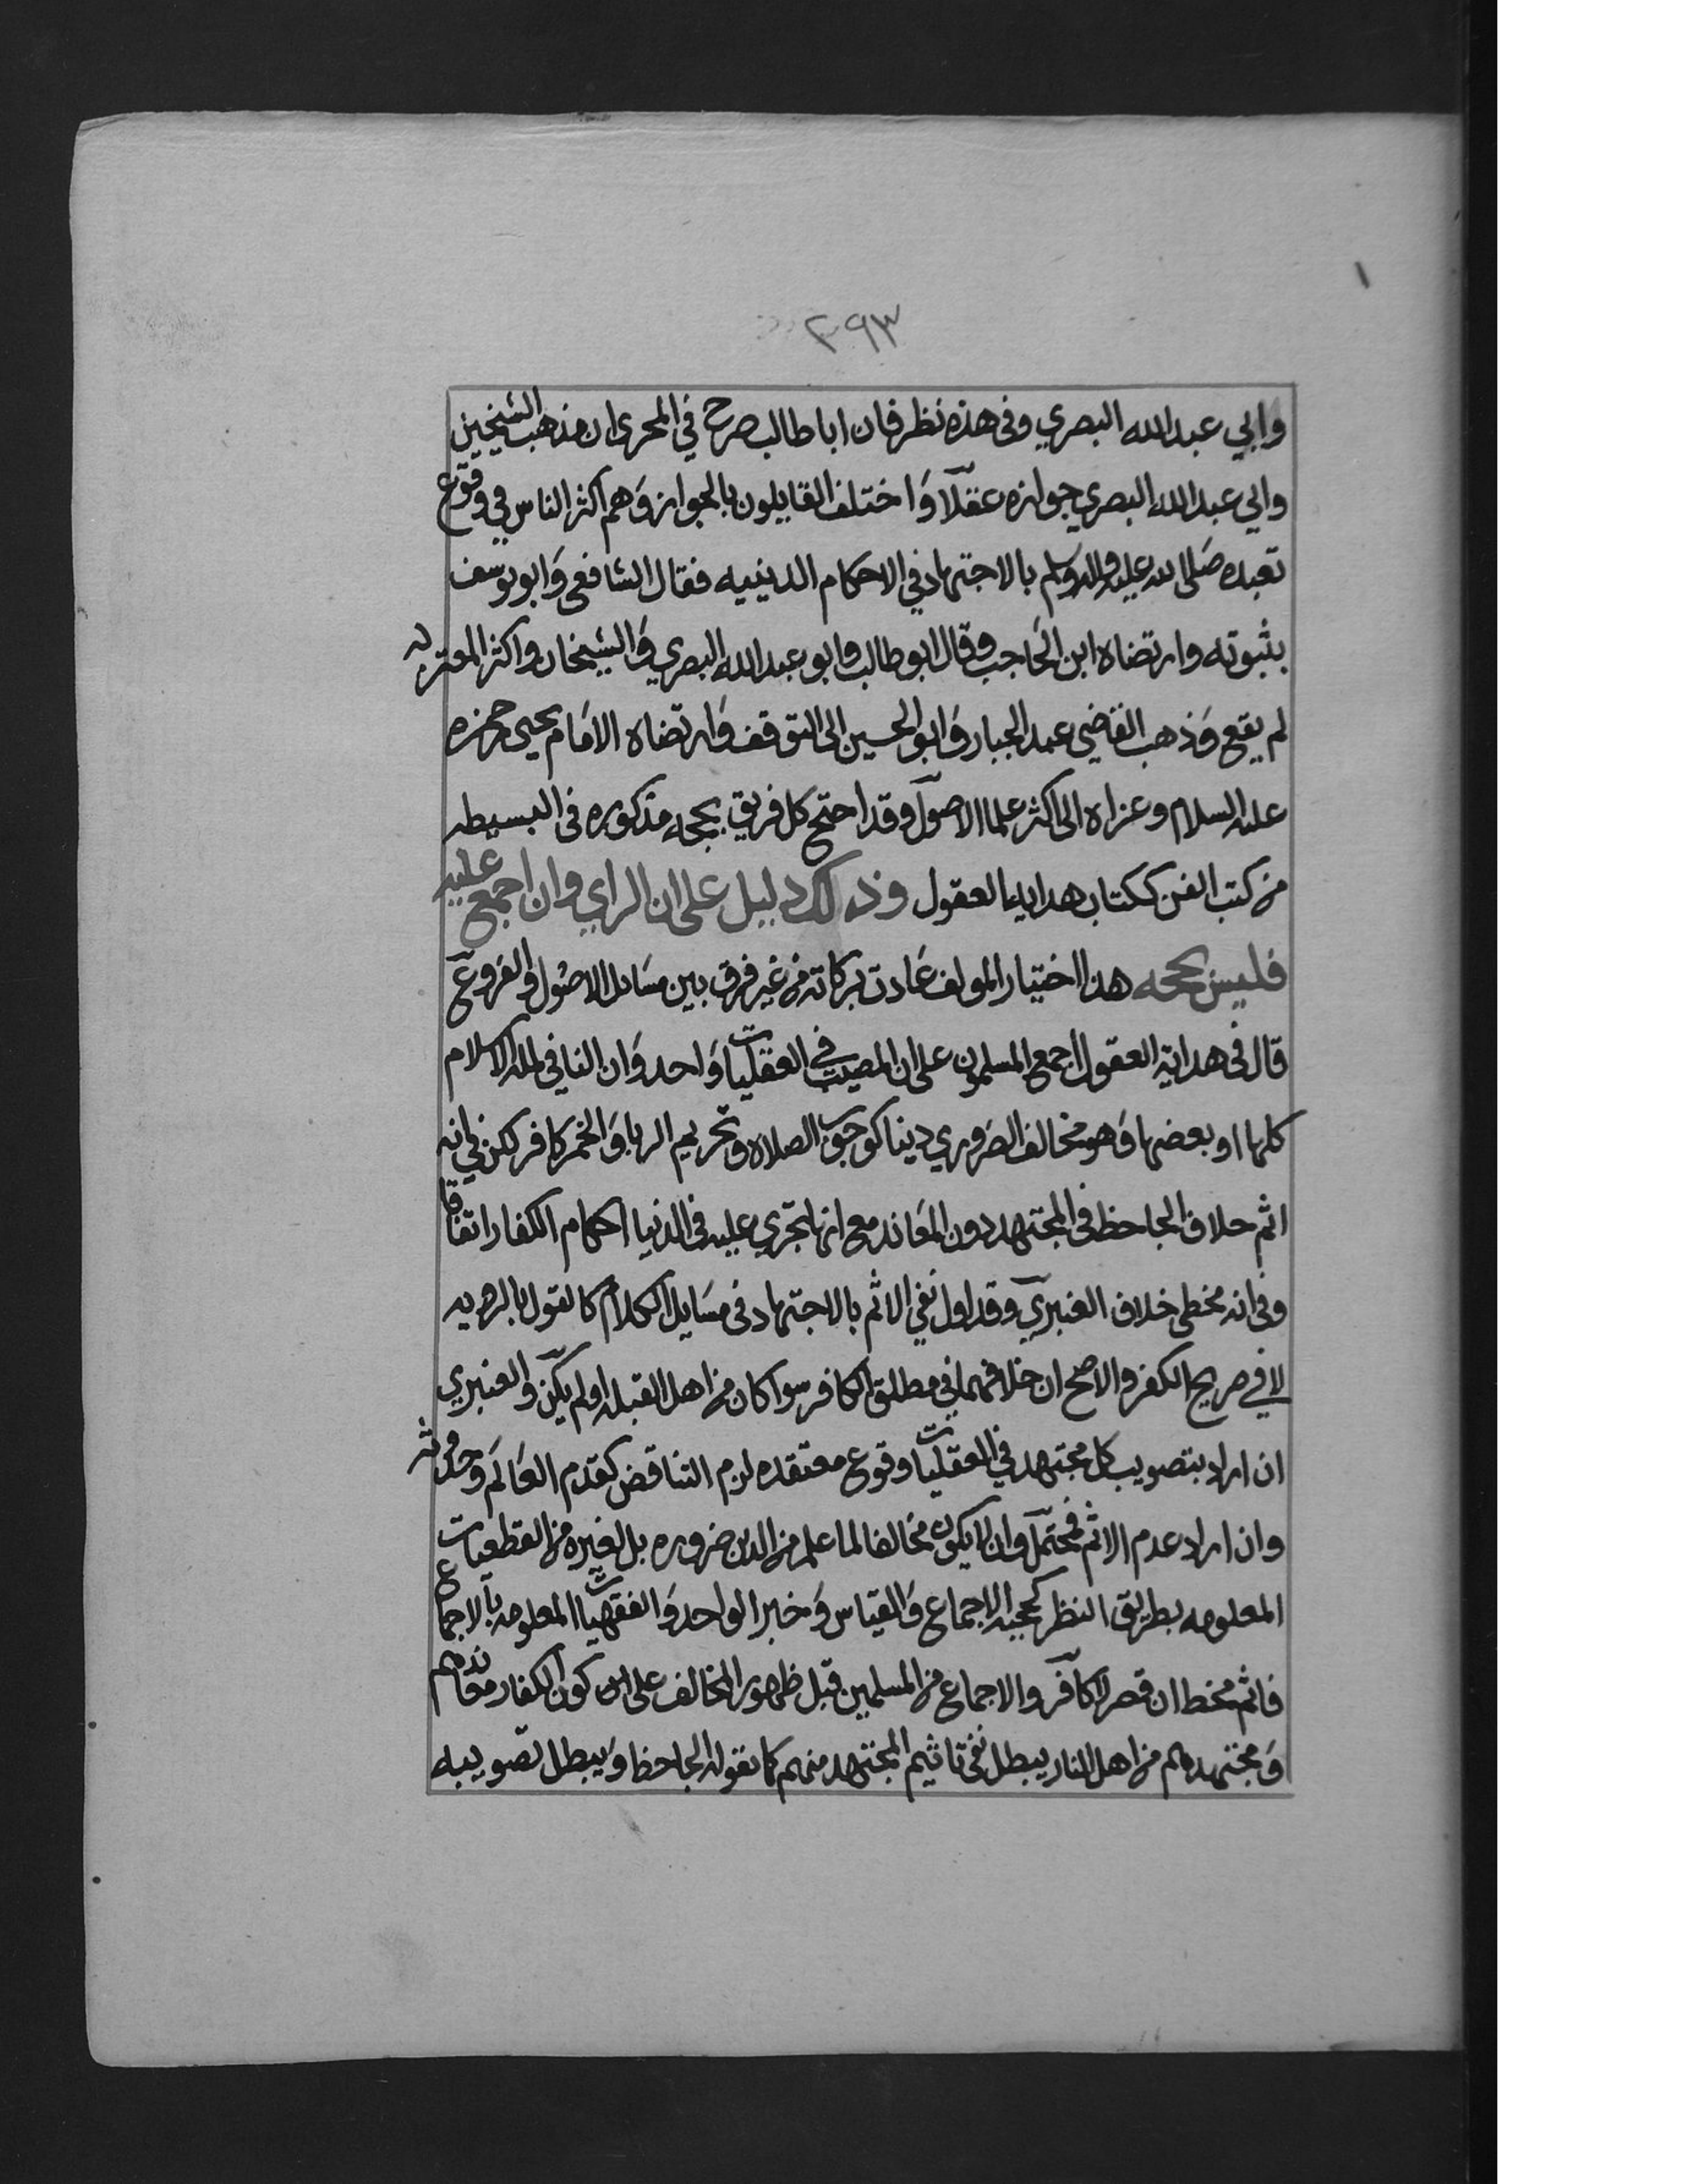 ١
٢٩٣
وابي عبدالله البصري وفى هذه نظر فان ابا طالب صرح في المحرى ان مذهب الشيخين
وابي عبدالله البصري جوازه عقلا وَاختلف القايلون بالجواز وَهم اكثر الناس في وقوع
تعبده صَلى الله عليه واله وسلم بالاجتهاد في الاحكام الدينيه فقال الشافعى وَابو يوسف
بثبوته وارتضاه ابن الحَاجب وقال ابو طالب وابو عبدالله البصري وَالشيخان واكثر المعتزله
لم يقع وَذهب القاضي عبد الجبار وَابو الحسين الى التوقف وَارتضاه الامَام يحيى حمزه
عليه السلام وعزاه الى اكثر علما الاصول وقد احتج كل فريق بحجه مذكوره فى البسيطه
من كتب الفن ككتاب هداية العقول وذلك دليل على ان الراي وان اجمع عليه
فليس بحجه هذا اختيار المولف عَادت بركاته من غير فرق بين مسَايل الاصُول والفروع
قال فى هداية العقول اجمع المسلمون على ان المصيب في العقليات وَاحد وَان النافى لملة الاسلام
كلها او بعضها وَهو مخالف الضروري دينا كوجوب الصلاه وتحريم الربا وَالخمر كافر لكن في انه
اثم خلاف الجاحظ فى المجتهد دون المعَاند مع انها تجري عليه فى الدنيا احكام الكفار اتفاقا
وفى انه مخطى خلاف العنبري وقد اول نفي الاثم بالاجتهاد فى مسَايل الكلام كالقول بالرويه
لا في صريح الكفر والاصح ان خلافهما في مطلق الكافر سوا كان من اهل القبله او لم يكن والعنبري
ان اراد بتصويب كل مجتهد في العقليات وقوع معتقده لزم التناقض كقدم العَالَم وحدوثه
وان اراد عدم الاثم فمحتمل وان لا يكون مخالفا لما علم من الدين ضروره بل لغيره من القطعيات
المعلومه بطريق النظر كحجية الاجماع وَالقياس وَخبر الواحد وَالفقهيات المعلومه بالاجماع
فاثم مخط ان قصر لا كافر والاجماع من المسلمين قبل ظهور المخالف على كون الكفار معَاندهم
وَمجتهدهم من اهل النار يبطل نفى تاثيم المجتهد منهم كما يقوله الجاحظ وَيبطل تصويبه